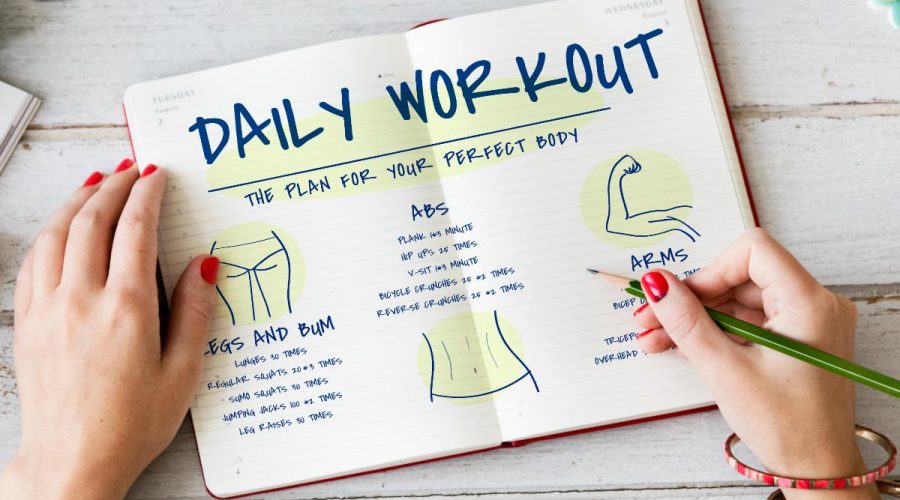 TUESDAY
August
2
WEDNESDAY
August
3
DAILY WORKOUT
THE PLAN FOR YOUR PERFECT BODY
LEGS AND BUM
LUNGES 30 TIMES
REGULAR SQUATS 20*3 TIMES
SUMO SQUATS 30 TIMES
JUMPING JACKS 100 *2 TIMES
LEG RAISES 30 TIMES
ABS
PLANK 1*3 MINUTE
HIP UPS 25 TIMES
V-SIT 1*3 MINUTE
BICYCLE CRUNCHES 25 *2 TIMES
REVERSE CRUNCHES 25 *2 TIMES
ARMS
BICEP TIMES
TRICEPS
OVERHEAD